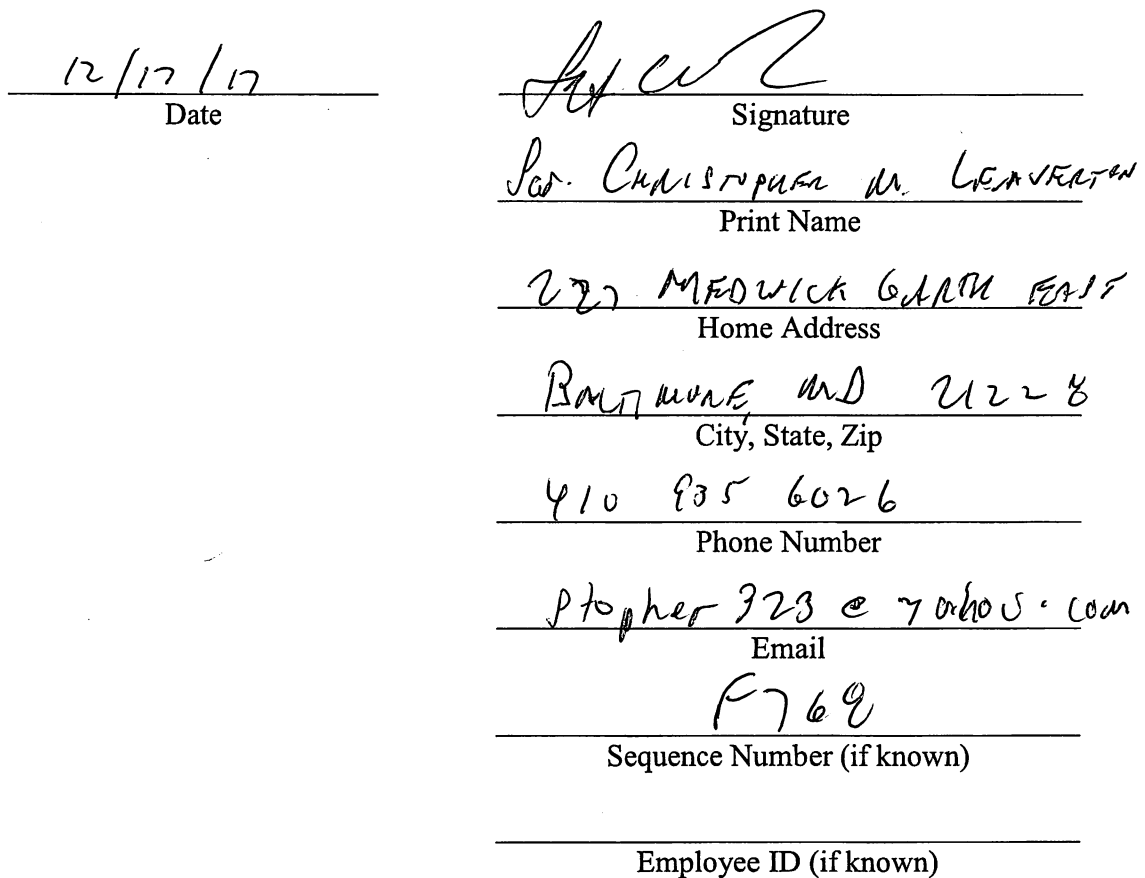 12/17/17
Date
Signature
Sgt. CHRISTOPHER M. LEAVERTON
Print Name
227 MEDWICK GARTH EAST
Home Address
BALTIMORE, MD 21228
City, State, Zip
410 935 6026
Phone Number
Email
F769
Sequence Number (if known)
Employee ID (if known)